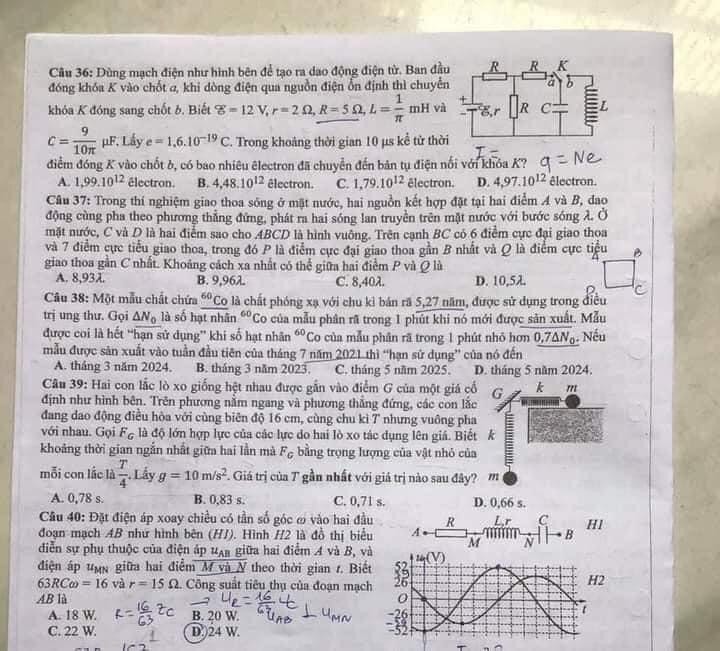 Câu 36: Dùng mạch điện như hình bên để tạo ra dao động điện từ. Ban đầu
đóng khóa K vào chốt a, khi dòng điện qua nguồn điện ổn định thì chuyển
khóa K đóng sang chốt b. Biết ℰ = 12 V, r = 2 Ω, R = 5 Ω, L = 1/π mH và
C = 9/10π μF. Lấy e = 1,6.10⁻¹⁹ C. Trong khoảng thời gian 10 μs kể từ thời
điểm đóng K vào chốt b, có bao nhiêu êlectron đã chuyển đến bản tụ điện nối với khóa K?
A. 1,99.10¹² êlectron. B. 4,48.10¹² êlectron. C. 1,79.10¹² êlectron. D. 4,97.10¹² êlectron.
R R K
a b
ℰ,r R C L
I =
q = Ne
Câu 37: Trong thí nghiệm giao thoa sóng ở mặt nước, hai nguồn kết hợp đặt tại hai điểm A và B, dao
động cùng pha theo phương thẳng đứng, phát ra hai sóng lan truyền trên mặt nước với bước sóng λ. Ở
mặt nước, C và D là hai điểm sao cho ABCD là hình vuông. Trên cạnh BC có 6 điểm cực đại giao thoa
và 7 điểm cực tiểu giao thoa, trong đó P là điểm cực đại giao thoa gần B nhất và Q là điểm cực tiểu
giao thoa gần C nhất. Khoảng cách xa nhất có thể giữa hai điểm P và Q là
A. 8,93λ. B. 9,96λ. C. 8,40λ. D. 10,5λ.
A B
D C
Câu 38: Một mẫu chất chứa ⁶⁰Co là chất phóng xạ với chu kì bán rã 5,27 năm, được sử dụng trong điều
trị ung thư. Gọi ΔN₀ là số hạt nhân ⁶⁰Co của mẫu phân rã trong 1 phút khi nó mới được sản xuất. Mẫu
được coi là hết “hạn sử dụng” khi số hạt nhân ⁶⁰Co của mẫu phân rã trong 1 phút nhỏ hơn 0,7ΔN₀. Nếu
mẫu được sản xuất vào tuần đầu tiên của tháng 7 năm 2021 thì “hạn sử dụng” của nó đến
A. tháng 3 năm 2024. B. tháng 3 năm 2023. C. tháng 5 năm 2025. D. tháng 5 năm 2024.
Câu 39: Hai con lắc lò xo giống hệt nhau được gắn vào điểm G của một giá cố
định như hình bên. Trên phương nằm ngang và phương thẳng đứng, các con lắc
đang dao động điều hòa với cùng biên độ 16 cm, cùng chu kì T nhưng vuông pha
với nhau. Gọi F_G là độ lớn hợp lực của các lực do hai lò xo tác dụng lên giá. Biết
khoảng thời gian ngắn nhất giữa hai lần mà F_G bằng trọng lượng của vật nhỏ của
mỗi con lắc là T/4. Lấy g = 10 m/s². Giá trị của T gần nhất với giá trị nào sau đây?
A. 0,78 s. B. 0,83 s. C. 0,71 s. D. 0,66 s.
G k m
k
m
Câu 40: Đặt điện áp xoay chiều có tần số góc ω vào hai đầu
đoạn mạch AB như hình bên (H1). Hình H2 là đồ thị biểu
diễn sự phụ thuộc của điện áp u_AB giữa hai điểm A và B, và
điện áp u_MN giữa hai điểm M và N theo thời gian t. Biết
63RCω = 16 và r = 15 Ω. Công suất tiêu thụ của đoạn mạch
AB là
A. 18 W. B. 20 W.
C. 22 W. D. 24 W.
R = 16/63 Zc
→ U_R = 16/63 U_C
u_AB ⊥ u_MN
R L,r C H1
A M N B
u(V)
52
26
O t
-26
-52
H2